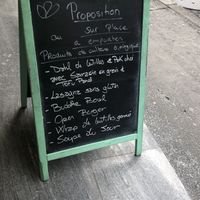 Proposition
au Sur Place
a emporter
Produits de culture biologique
- Dahl de lentilles & Pak choi
avec Sarrasin en grain et
Tofu Pané
- Lasagne sans gluten
- Buddha Bowl
- Open Burger
- Wrap de lentilles
- Soupe du Jour